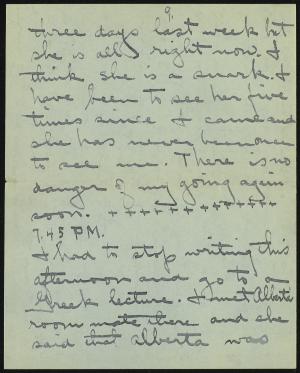 9.
three days last week but
she is all right now. I
think she is a snark. I
have been to see her five
times since I came and
she has never been once
to see me. There is no
danger of my going again
soon. + + + + + + + + + + + + + +
7.45 P.M.
I had to stop writing this
afternoon and go to a
Greek lecture. I met Alberta
room mate there and she
said that Alberta was